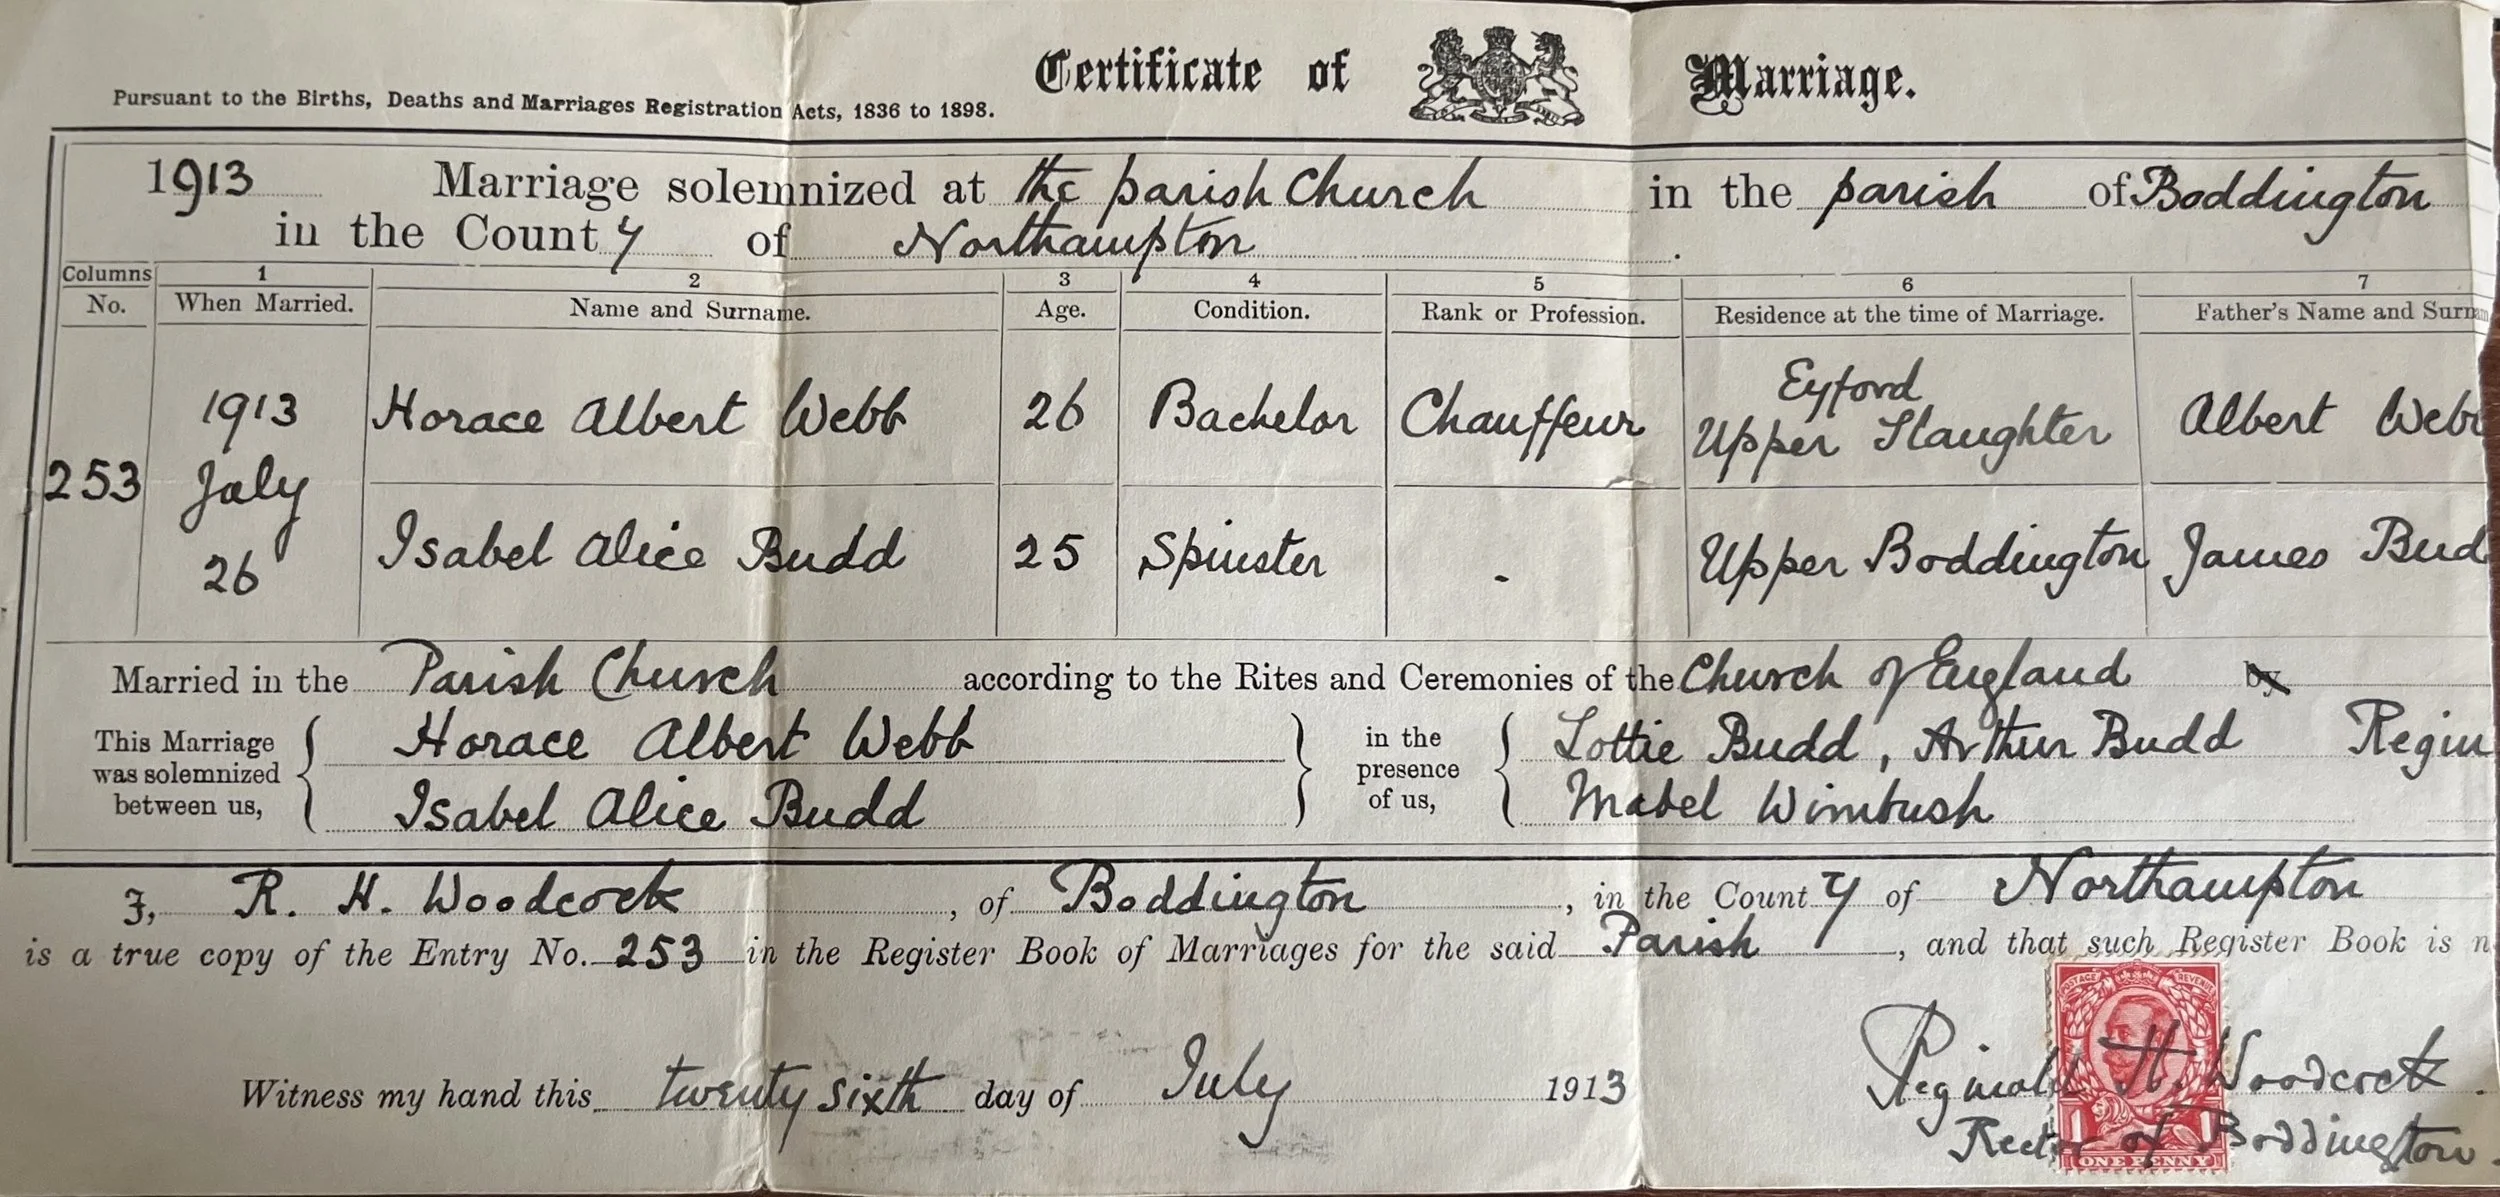 Certificate of Marriage.
Pursuant to the Births, Deaths and Marriages Registration Acts, 1836 to 1898.
1913 Marriage solemnized at the parish Church in the parish of Boddington
in the County of Northampton.
Columns 1 2 3 4 5 6 7
No. When Married. Name and Surname. Age. Condition. Rank or Profession. Residence at the time of Marriage. Father's Name and Surnam
253
1913
July
26
Horace Albert Webb 26 Bachelor Chauffeur Eyford
Upper Slaughter Albert Web
Isabel Alice Budd 25 Spinster - Upper Boddington James Bud
Married in the Parish Church according to the Rites and Ceremonies of the Church of England by
This Marriage
was solemnized
between us,
Horace Albert Webb
Isabel Alice Budd
in the
presence
of us,
Lottie Budd, Arthur Budd Regin
Mabel Wimbush
I, R. H. Woodcock, of Boddington, in the County of Northampton
is a true copy of the Entry No. 253 in the Register Book of Marriages for the said Parish, and that such Register Book is n
Witness my hand this twenty sixth day of July 1913
Reginald H. Woodcock.
Rector of Boddington.
POSTAGE REVENUE
1 1
ONE PENNY